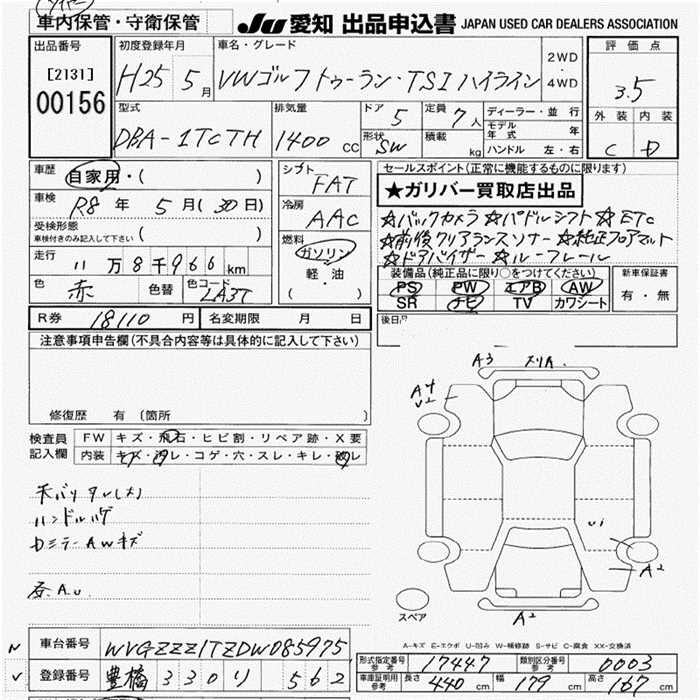 車内保管・守衛保管 JU 愛知 出品申込書 JAPAN USED CAR DEALERS ASSOCIATION
出品番号 初度登録年月 車名・グレード 評価点
[2131] 00156 H25 5月 VWゴルフトゥーラン・TSIハイライン 2WD・4WD 3.5
型式 排気量 ドア 5 定員 7人 ディーラー・並行 外装 内装
DBA-1TCTH 1400cc 形状 SW 積載 kg モデル年式 年 C D
ハンドル 左・右
車歴 自家用・( ) シフト FAT セールスポイント(正常に機能するものに限ります)
★ガリバー買取店出品
車検 R8年 5月(30日) 冷房 AAC
☆バックカメラ ☆パドルシフト ☆ETC
受検形態 車検付きのみ記入して下さい( )
☆前後クリアランスソナー ☆純正フロアマット
☆ドアバイザー ☆ルーフレール
走行 11万8千966km 燃料 ガソリン 軽・油 ( )
装備品(純正品に限り○をつけてください) 新車保証書
色 赤 色替 色コード LA3T
PS PW エアB AW 有・無
SR ナビ TV カワシート
R券 18110円 名変期限 月 日 後日
注意事項申告欄(不具合内容等は具体的に記入して下さい)
修復歴 有(箇所 )
A3 スリA.
A4
U2
検査員 記入欄 FW キズ・飛石・ヒビ割・リペア跡・X要
内装 キズ・汚レ・コゲ・穴・スレ・キレ・破レ
天バリタレ(大)
ハンドルハゲ
ミラーAWキズ
A.U.
U1
A2
スペア A2
A-キズ E-エクボ U-凹み W-補修跡 S-サビ C-腐食 XX-交換済
N 車台番号 WVGZZZ1TZDW085975
V 登録番号 豊橋 330 り 562
形式指定番号 参考 17447 類別区分番号 参考 0003
車庫証明用 参考 長さ 440cm 幅 179cm 高さ 167cm